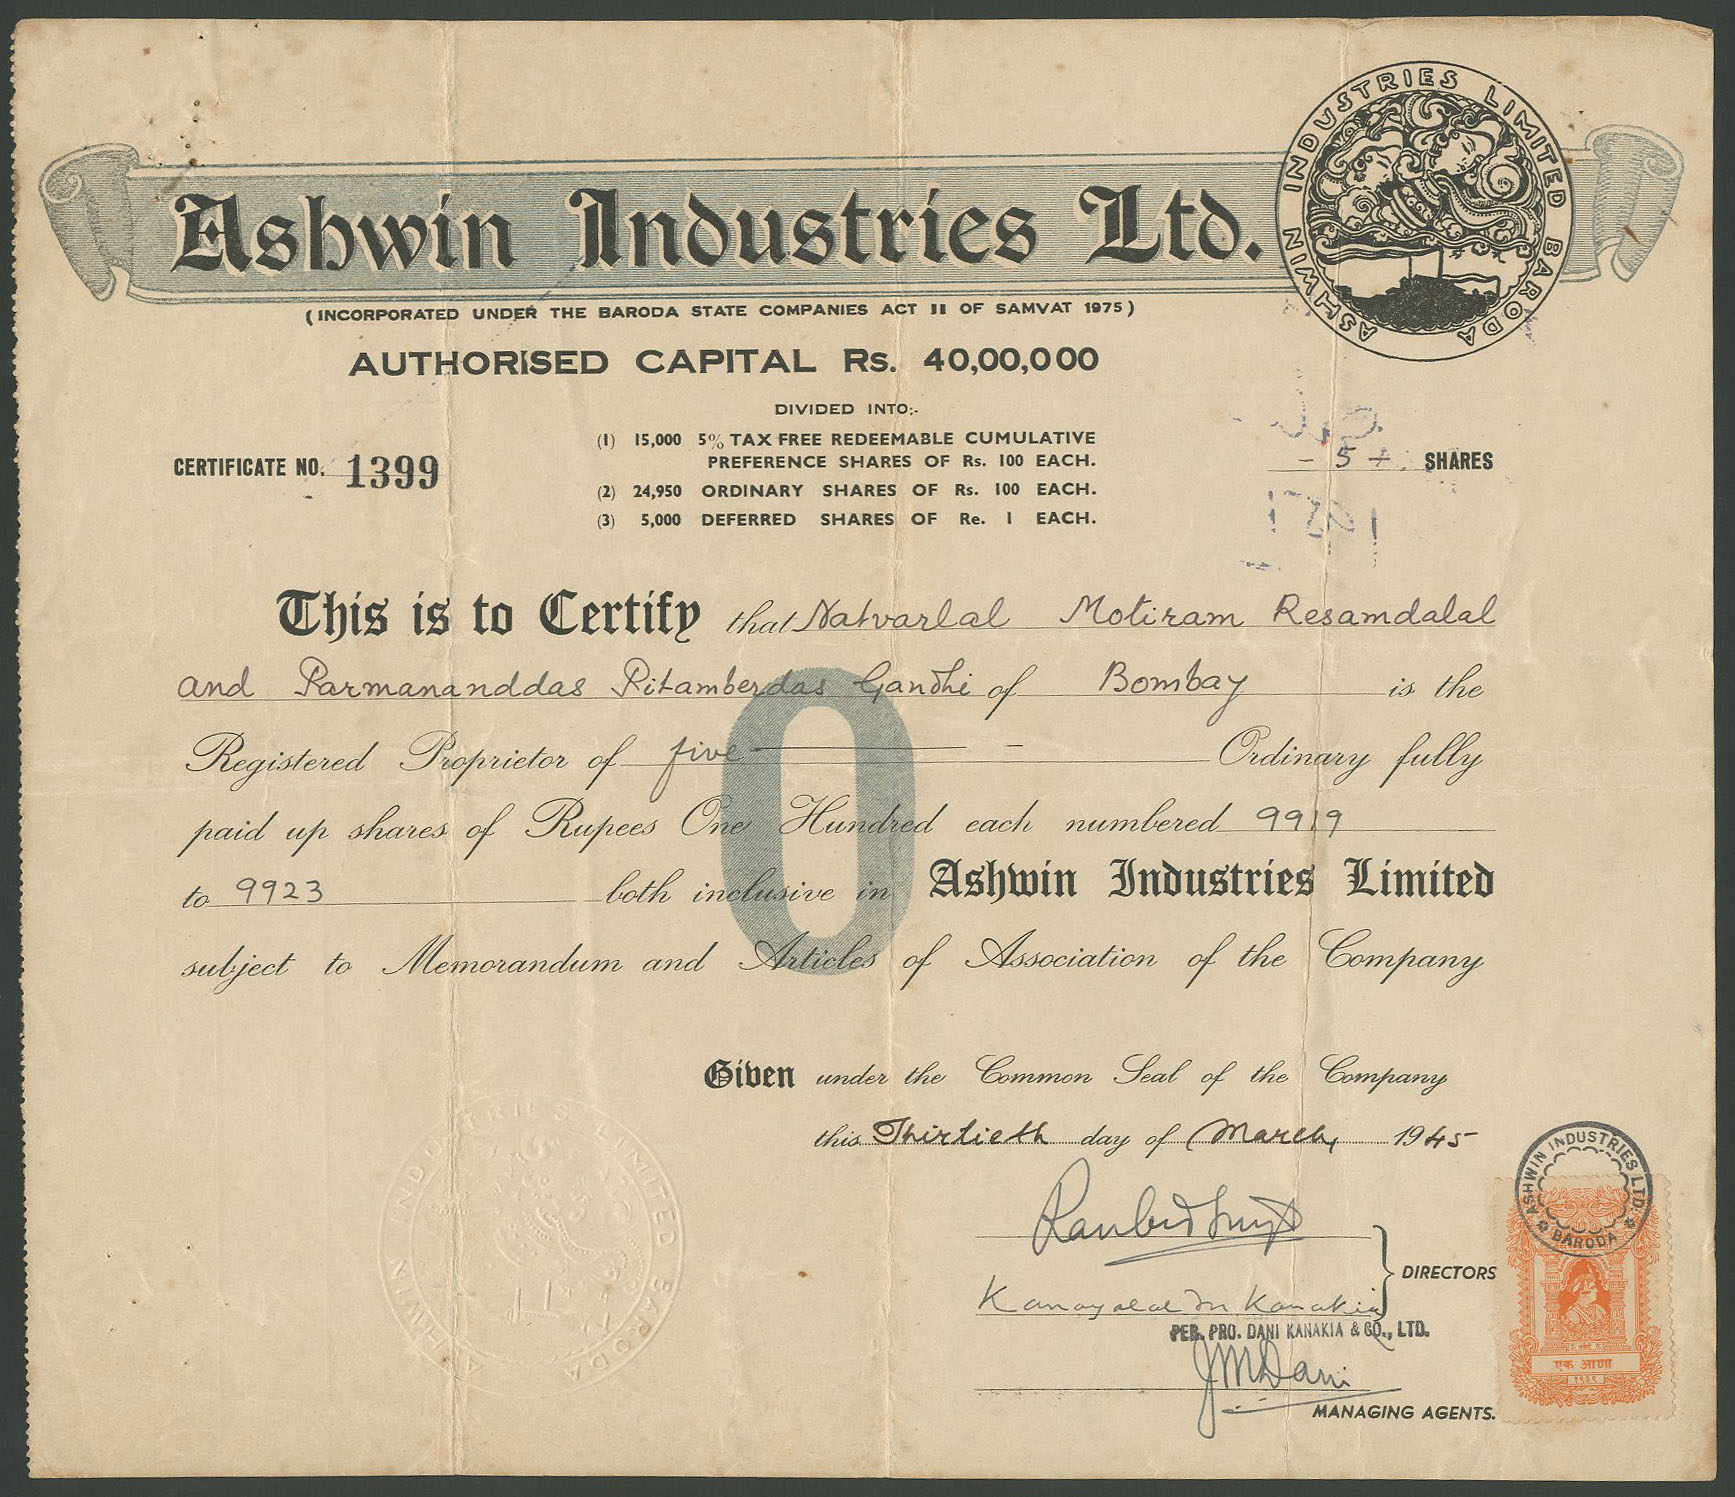 Ashwin Industries Ltd.
ASHWIN INDUSTRIES LIMITED BARODA
(INCORPORATED UNDER THE BARODA STATE COMPANIES ACT II OF SAMVAT 1975)
AUTHORISED CAPITAL Rs. 40,00,000
DIVIDED INTO:-
(1) 15,000 5% TAX FREE REDEEMABLE CUMULATIVE
PREFERENCE SHARES OF Rs. 100 EACH.
(2) 24,950 ORDINARY SHARES OF Rs. 100 EACH.
(3) 5,000 DEFERRED SHARES OF Re. 1 EACH.
CERTIFICATE NO. 1399
- 5 + SHARES
This is to Certify that Natvarlal Motiram Resamdalal
and Parmananddas Pitamberdas Gandhi of Bombay is the
Registered Proprietor of five Ordinary fully
paid up shares of Rupees One Hundred each numbered 9919
to 9923 both inclusive in Ashwin Industries Limited
subject to Memorandum and Articles of Association of the Company
O
Given under the Common Seal of the Company
this Thirtieth day of March 1945
DIRECTORS
Kanayalal M Kanakia
PER. PRO. DANI KANAKIA & CO., LTD.
JMDani
MANAGING AGENTS.
ASHWIN INDUSTRIES LIMITED BARODA
ASHWIN INDUSTRIES LTD. BARODA
एक आणा